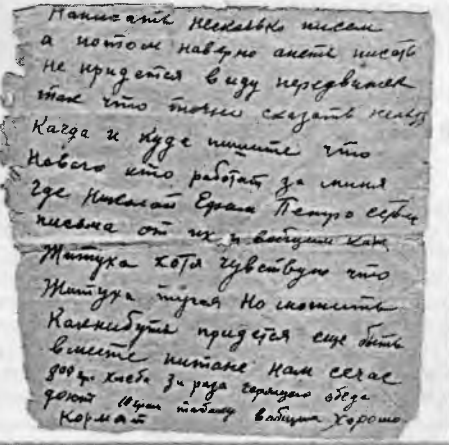 Написать несколько писем
а потом наверно опеть писать
не придется ввиду передвижек
так что точно сказать нельзя
Кагда и куда пишите что
Нового кто работаит за миня
Где Николай Ераш Петро есть ли
письма от их и вопщим как
Житуха хотя чувствую что
Житуха тугая Но может
Какнибуть придется еще быть
вместе питане нам сечас
хлеба 3и раза горящего обеда
дают табаку вопщим хорошо
Кормят